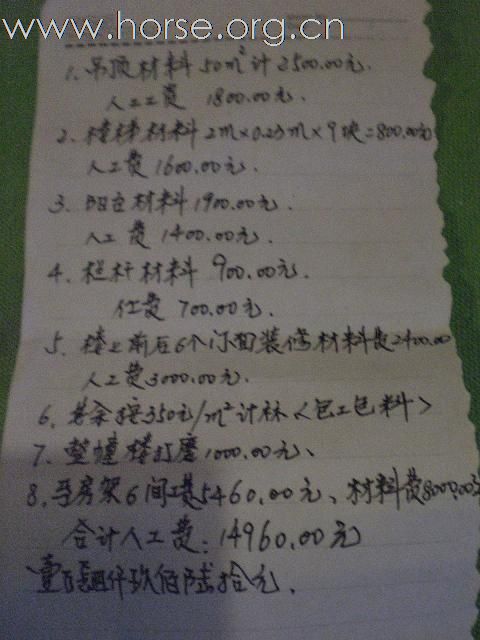 www.horse.org.cn
1. 吊顶材料 50m²计 2500.00元.
人工工费 1800.00元.
2. 楼梯材料 2m×0.25m×9块=800.00元
人工费 1600.00元.
3. 阳台材料 1900.00元.
人工费 1400.00元.
4. 栏杆材料 900.00元.
工费 700.00元.
5. 楼上前后6个门面装修材料费2400.00
人工费3000.00元.
6. 其余按350元/m²计算<包工包料>
7. 整幢楼打磨1000.00元、
8. 马房架6间工费5460.00元、材料费8000.00元
合计人工费:14960.00元
壹万肆仟玖佰陆拾元.